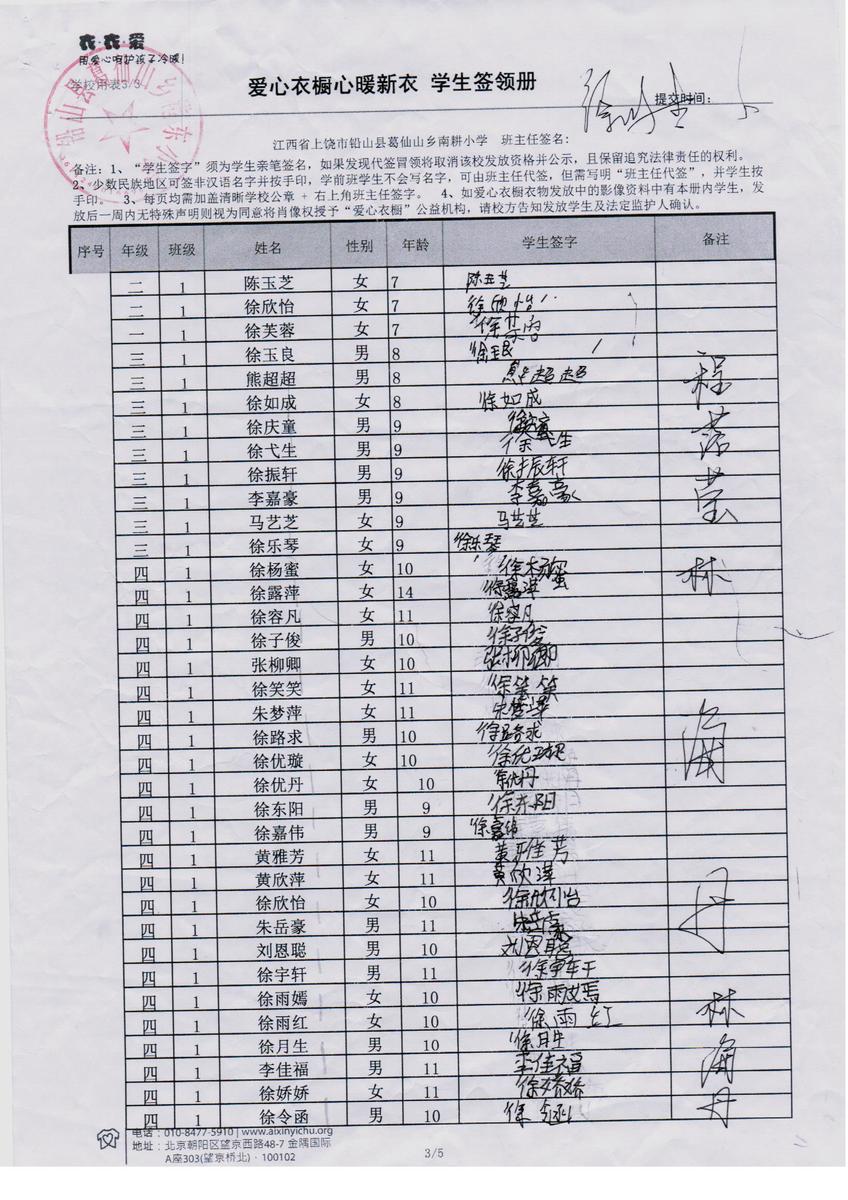 衣·衣·爱
用爱心呵护孩子冷暖!
学校用表3/3
爱心衣橱心暖新衣 学生签领册
提交时间:
江西省上饶市铅山县葛仙山乡南耕小学 班主任签名:
备注: 1、“学生签字”须为学生亲笔签名,如果发现代签冒领将取消该校发放资格并公示,且保留追究法律责任的权利。
2、少数民族地区可签非汉语名字并按手印,学前班学生不会写名字,可由班主任代签,但需写明“班主任代签”,并学生按
手印。 3、每页均需加盖清晰学校公章 + 右上角班主任签字。 4、如爱心衣橱衣物发放中的影像资料中有本册内学生,发
放后一周内无特殊声明则视为同意将肖像权授予“爱心衣橱”公益机构,请校方告知发放学生及法定监护人确认。
序号 年级 班级 姓名 性别 年龄 学生签字 备注
二 1 陈玉芝 女 7 陈玉芝
二 1 徐欣怡 女 7 徐欣怡
一 1 徐芙蓉 女 7
三 1 徐玉良 男 8 徐玉良
三 1 熊超超 男 8 熊超超
三 1 徐如成 女 8 徐如成
三 1 徐庆童 男 9
三 1 徐弋生 男 9 徐弋生
三 1 徐振轩 男 9 徐振轩
三 1 李嘉豪 男 9 李嘉豪
三 1 马艺芝 女 9 马艺芝
三 1 徐乐琴 女 9 徐乐琴
四 1 徐杨蜜 女 10 徐杨蜜 林
四 1 徐露萍 女 14 徐露萍
四 1 徐容凡 女 11 徐容凡
四 1 徐子俊 男 10 徐子俊
四 1 张柳卿 女 10 张柳卿
四 1 徐笑笑 女 11 徐笑笑
四 1 朱梦萍 女 11 朱梦萍
四 1 徐路求 男 10 徐路求
四 1 徐优璇 女 10 徐优璇
四 1 徐优丹 女 10 徐优丹
四 1 徐东阳 男 9 徐东阳
四 1 徐嘉伟 男 9 徐嘉伟
四 1 黄雅芳 女 11 黄雅芳
四 1 黄欣萍 女 11 黄欣萍
四 1 徐欣怡 女 10 徐欣怡 丹
四 1 朱岳豪 男 11 朱岳豪
四 1 刘恩聪 男 10 刘恩聪
四 1 徐宇轩 男 11 徐宇轩
四 1 徐雨嫣 女 10 徐雨嫣
四 1 徐雨红 女 10 徐雨红 林
四 1 徐月生 男 10 徐月生
四 1 李佳福 男 11 李佳福
四 1 徐娇娇 女 11 徐娇娇
四 1 徐令函 男 10 徐令函 丹
电话:010-8477-5910 | www.aixinyichu.org
地址:北京朝阳区望京西路48-7 金隅国际
A座303(望京桥北)·100102
3/5